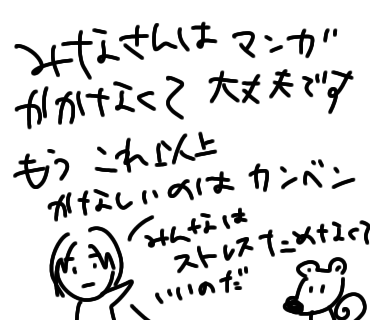 みなさんは マンガ
がかけなくて 大丈夫です
もう これ以上
かなしいのは カンベン
みんなは
ストレスためなくて
いいのだ